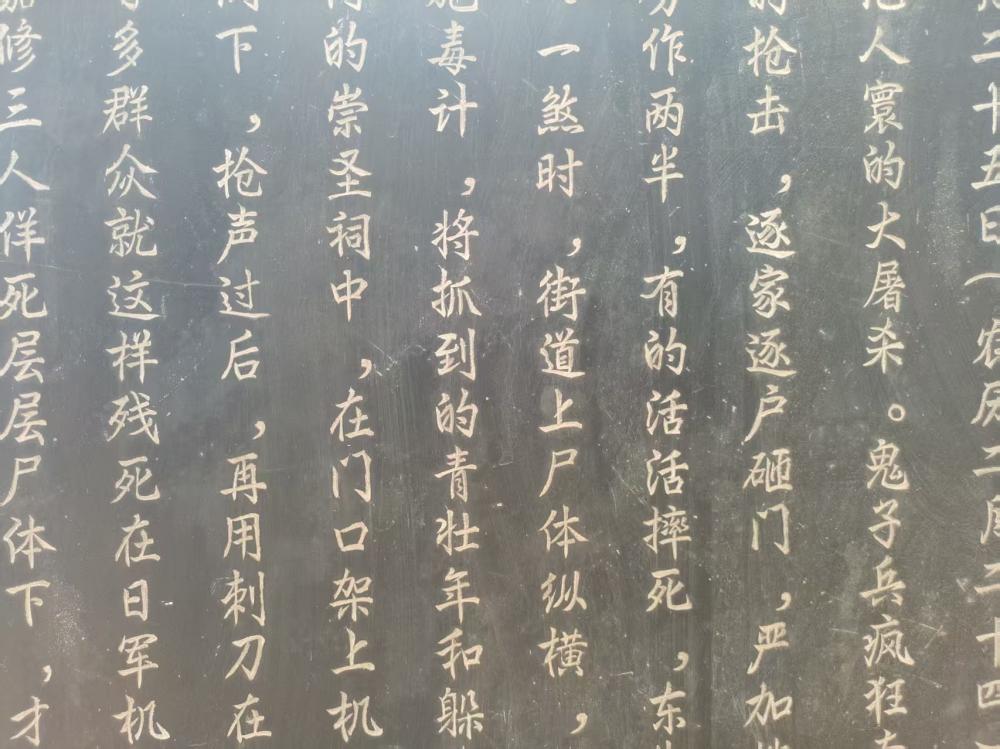 二十五日（农历二月二十四
人寰的大屠杀。鬼子兵疯狂
枪击，逐家逐户砸门，严加
作两半，有的活活摔死，东
一煞时，街道上尸体纵横，
毒计，将抓到的青壮年和躲
的崇圣祠中，在门口架上机
下，枪声过后，再用刺刀在
多群众就这样残死在日军机
修三人佯死层层尸体下，才